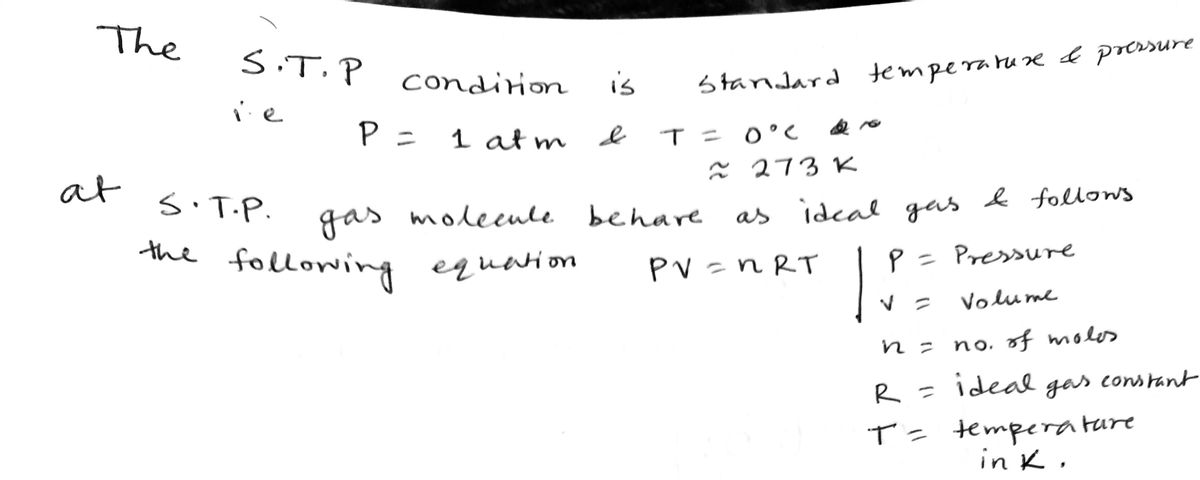 The S.T.P condition is standard temperature & pressure
i.e
P = 1 atm & T = 0°C
≈ 273 K
at S.T.P. gas molecule behave as ideal gas & follows
the following equation PV = nRT | P = Pressure
V = Volume
n = no. of moles
R = ideal gas constant
T = temperature
in K.